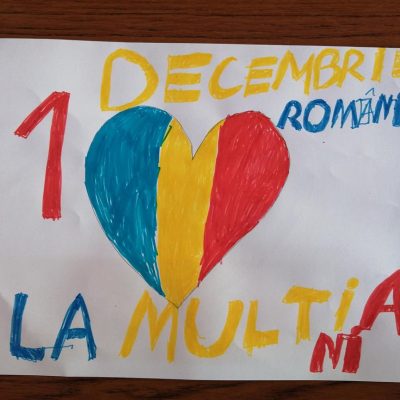 1 DECEMBRIE
ROMÂNI
LA MULTI A
NI